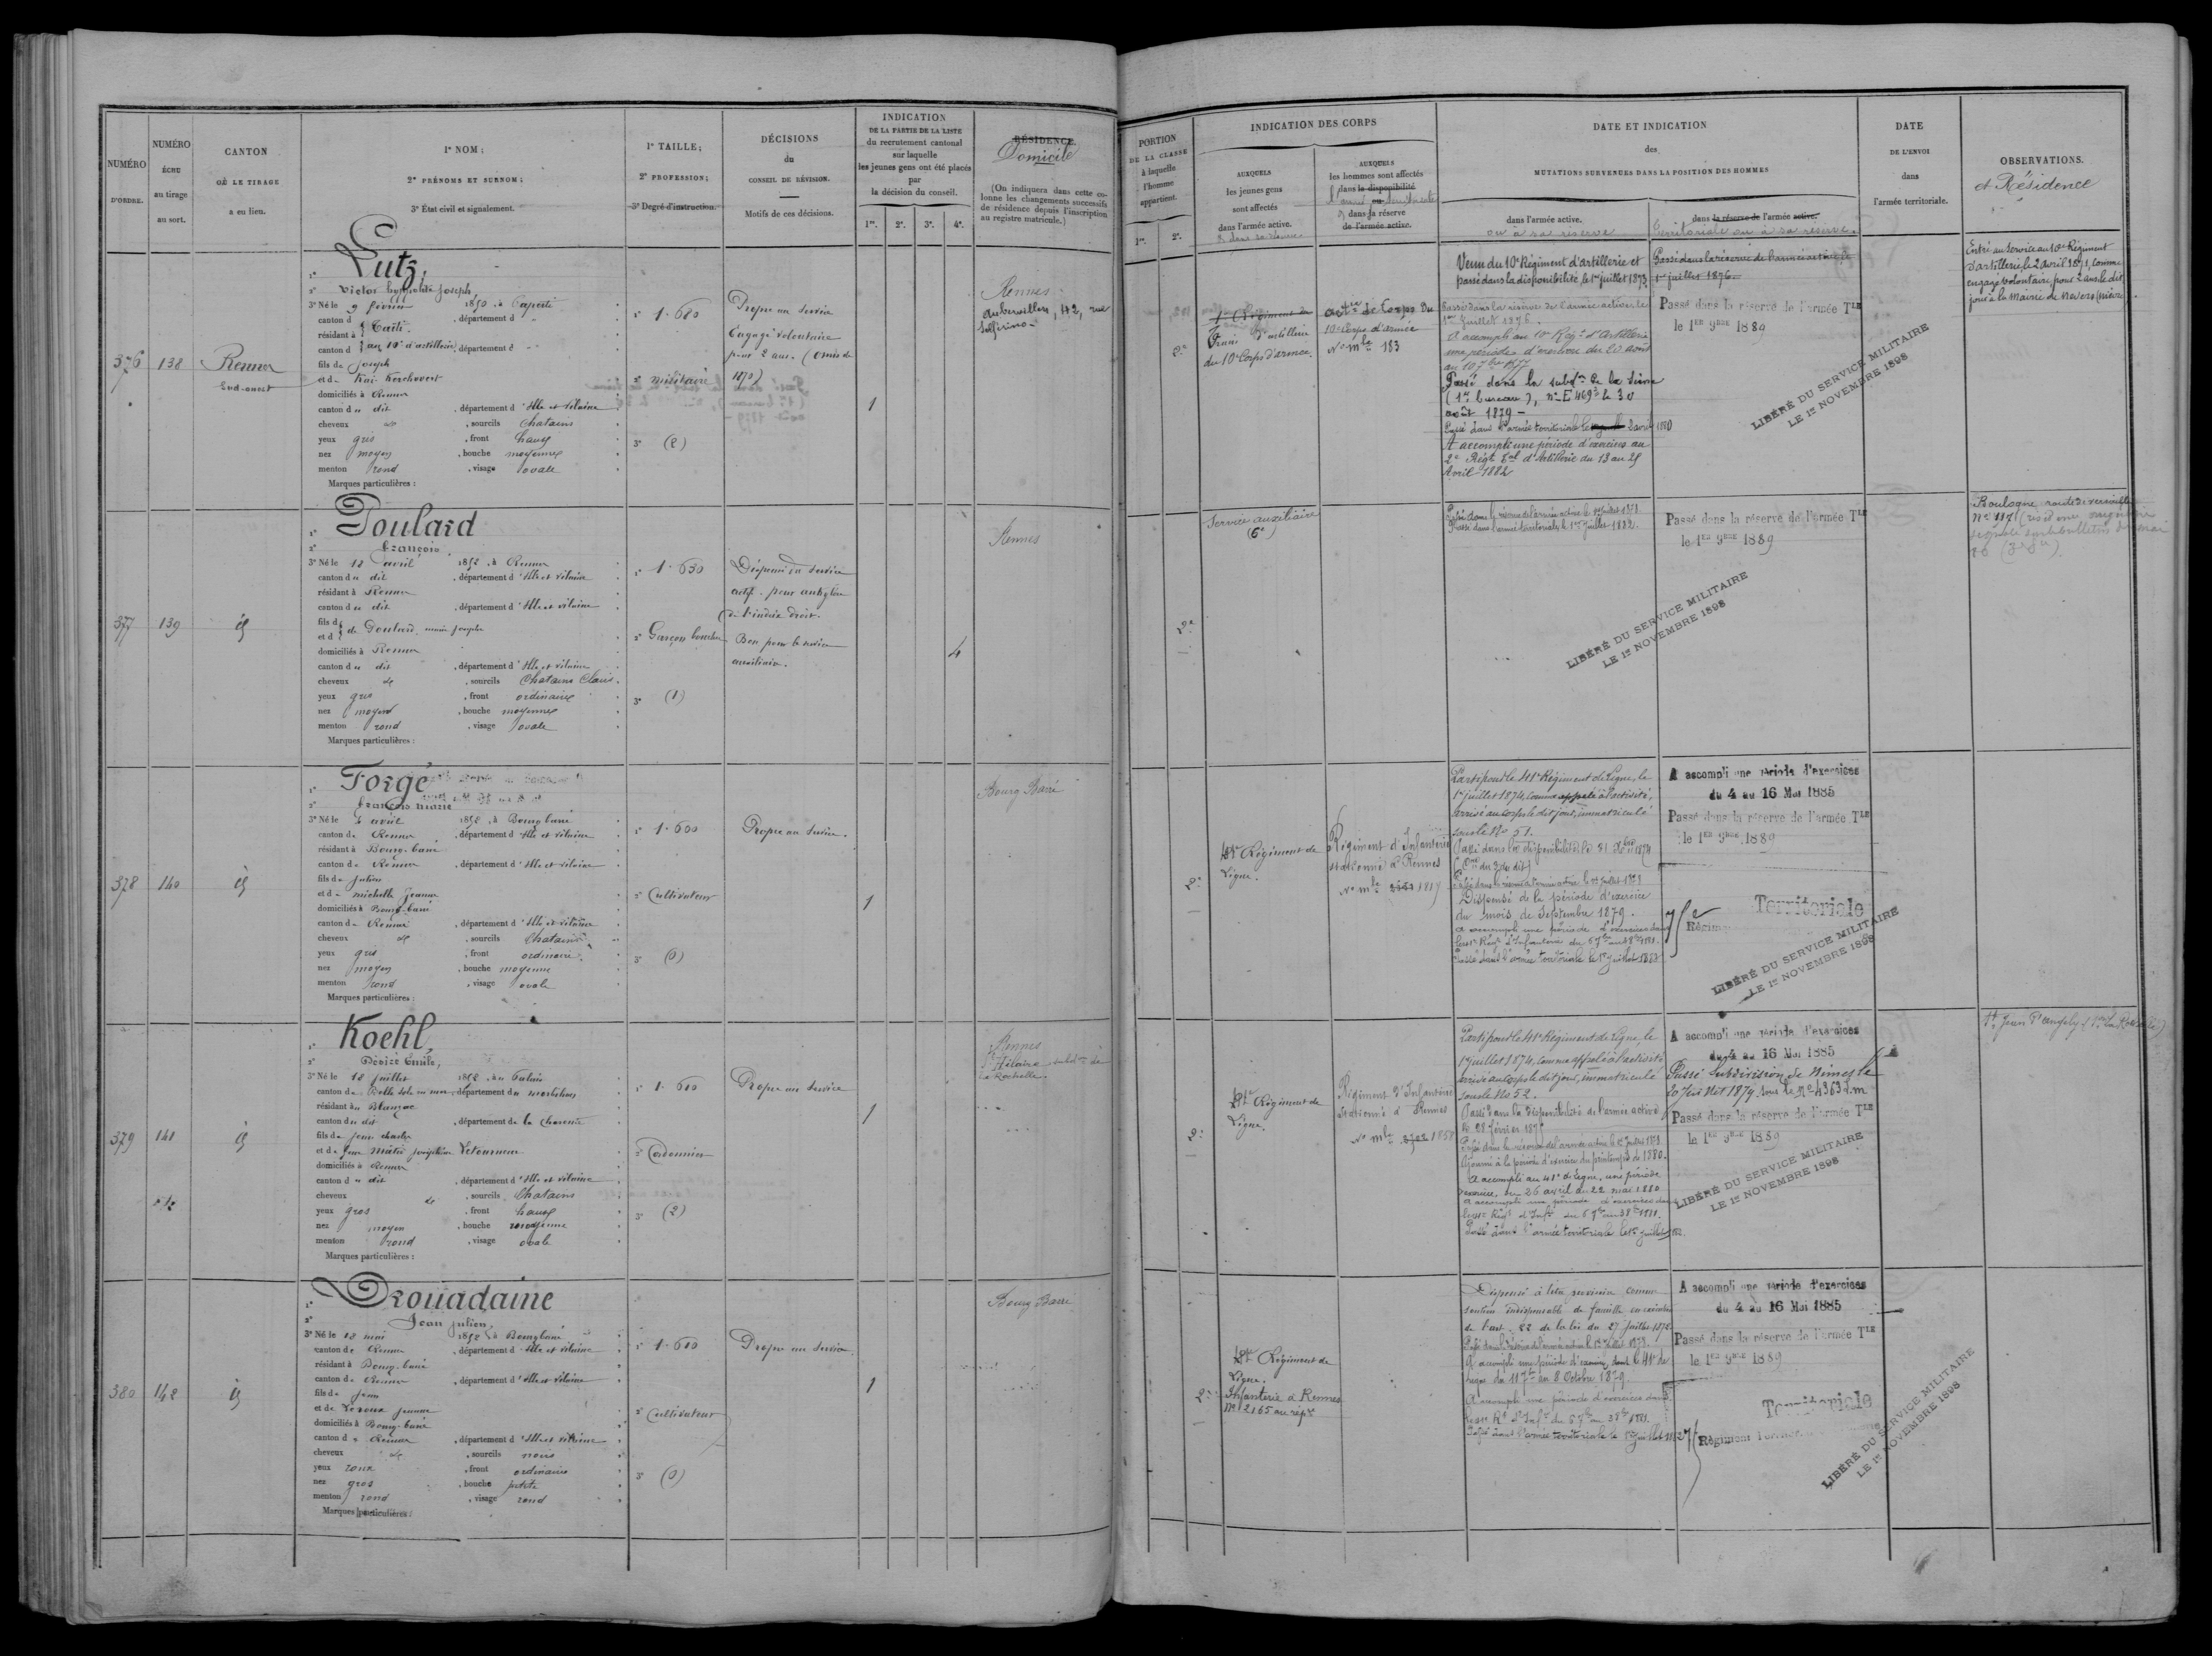 NUMÉRO
D'ORDRE.
NUMÉRO
ÉCHU
au tirage
au sort.
CANTON
OÙ LE TIRAGE
a eu lieu.
1º NOM;
2º PRÉNOMS ET SURNOM;
3º État civil et signalement.
1º TAILLE;
2º PROFESSION;
3º Degré d'instruction.
DÉCISIONS
du
CONSEIL DE RÉVISION.
Motifs de ces décisions.
INDICATION
DE LA PARTIE DE LA LISTE
du recrutement cantonal
sur laquelle
les jeunes gens ont été placés
par
la décision du conseil.
1re. 2e. 3e. 4e.
RÉSIDENCE
Domicile
(On indiquera dans cette co-
lonne les changements successifs
de résidence depuis l'inscription
au registre matricule.)
PORTION
DE LA CLASSE
à laquelle
l'homme
appartient.
1re. 2e.
INDICATION DES CORPS
AUXQUELS
les jeunes gens
sont affectés
dans l'armée active.
AUXQUELS
les hommes sont affectés
dans la disponibilité
ou
dans la réserve
de l'armée active.
DATE ET INDICATION
des
MUTATIONS SURVENUES DANS LA POSITION DES HOMMES
dans l'armée active.
ou à sa réserve
dans la réserve de l'armée active.
Territoriale ou à sa réserve.
DATE
DE L'ENVOI
dans
l'armée territoriale.
OBSERVATIONS.
et Résidence
376
138
Rennes
Sud-ouest
1º Lutz,
2º Victor hyppolite Joseph,
3º Né le 9 février 1850, à
canton d , département d
résidant à
canton d au 10e d'artillerie, département d
fils de Joseph
et de
domiciliés à Rennes
canton du dit , département d'Ille et vilaine
cheveux et , sourcils Chatains
yeux gris , front haut
nez moyen , bouche moyenne
menton rond , visage ovale
Marques particulières :
1º 1.680
2º militaire
3º (2)
Propre au service
Engagé volontaire
pour 2 ans. (omis de
1870)
1
Rennes
Aubervilliers, 42, rue
Solférino
2e
1er Régiment du
Train d'artillerie
du 10e Corps d'armée
Corps du
10e Corps d'armée
No mle 183
Venu du 10e Régiment d'artillerie et
passé dans la disponibilité le 1er juillet 1873
Passé dans la réserve de l'armée active le
1er Juillet 1876.
A accompli au 10e Régt d'Artillerie
une période d'exercices du 20 août
au 10 7bre 1877
Passé dans la subdon de la Seine
(1er bureau), no E 4693 le 30
août 1879 -
Passé dans l'armée territoriale le 2 avril 1880
A accompli une période d'exercices au
2e Régt Tal d'Artillerie du 13 au 25
Avril 1882
Passé dans la réserve de l'armée active le
1er juillet 1876.
Passé dans la réserve de l'armée TLE
le 1ER 9BRE 1889
LIBÉRÉ DU SERVICE MILITAIRE
LE 1er NOVEMBRE 1898
Entré au Service au 10e Régiment
d'artillerie le 2 avril 1871, comme
engagé volontaire pour 2 ans le dit
jour à la Mairie de Nevers (nièvre
377
139
id
1º Poulard
2º François,
3º Né le 12 avril 1852, à Rennes
canton du dit , département d'Ille et vilaine
résidant à Rennes
canton du dit , département d'Ille et vilaine
fils d
et d de Poulard, marie Josephe
domiciliés à Rennes
canton du dit , département d'Ille et vilaine
cheveux et , sourcils Chatains Clairs
yeux gris , front ordinaire
nez moyen , bouche moyenne
menton rond , visage ovale
Marques particulières :
1º 1.630
2º Garçon boucher
3º (1)
Dispensé du service
actif. pour ankylose
de l'index droit.
Bon pour le service
auxiliaire.
4
Rennes
2e
Service auxiliaire
(6e)
Passé dans la réserve de l'armée active le 1er juillet 1878.
Passé dans l'armée territoriale le 1er Juillet 1882.
Passé dans la réserve de l'armée TLE
le 1ER 9BRE 1889
LIBÉRÉ DU SERVICE MILITAIRE
LE 1er NOVEMBRE 1898
Boulogne route de versailles
No 117
378
140
id
1º Forgé
2º François marie
3º Né le 4 avril 1852, à Bourg barré
canton de Rennes , département d'Ille et vilaine
résidant à Bourg-barré
canton de Rennes , département d'Ille et vilaine
fils de Julien
et de michelle Jeanne
domiciliés à Bourg-barré
canton de Rennes , département d'Ille et vilaine
cheveux et , sourcils Chatains
yeux gris , front ordinaire
nez moyen , bouche moyenne
menton rond , visage ovale
Marques particulières :
1º 1.600
2º Cultivateur
3º (0)
Propre au service.
1
Bourg Barré
2e
41e Régiment de
Ligne.
Régiment d'Infanterie
stationné à Rennes
No mle 1817
Parti pour le 41e Régiment de Ligne, le
1er juillet 1874, comme appelé à l'activité,
arrivé au corps le dit jour, immatriculé
sous le No 51.
Passé dans la disponibilité le 31 Xbre 1874
Passé dans la réserve de l'armée active le 1er juillet 1878
Dispensé de la période d'exercice
du mois de Septembre 1879.
A accompli une période d'exercices dans
le 41e Régt d'Infanterie du 6 7bre au 3 8bre 1881.
Passé dans l'armée territoriale le 1er Juillet 1882
A accompli une période d'exercices
du 4 au 16 Mai 1885
Passé dans la réserve de l'armée TLE
le 1ER 9BRE 1889
75e
Territoriale
Régim
LIBÉRÉ DU SERVICE MILITAIRE
LE 1er NOVEMBRE 1898
379
141
id
1º Koehl,
2º Désiré Emile,
3º Né le 18 juillet 1852, au Palais
canton de Belle isle en mer, département du morbihan
résidant à Blanzac
canton du dit , département de la Charente
fils de Jean charles
et de feue Marie Joséphine Letourneur
domiciliés à Rennes
canton du dit , département d'Ille et vilaine
cheveux et , sourcils Chatains
yeux gros , front haut
nez moyen , bouche moyenne
menton rond , visage ovale
Marques particulières :
1º 1.610
2º Cordonnier
3º (2)
Propre au service
1
Rennes
St Hilaire subdon de
La Rochelle
2e
41e Régiment de
Ligne.
Régiment d'Infanterie
Stationné à Rennes
No mle 1858
Parti pour le 41e Régiment de Ligne, le
1er juillet 1874, comme appelé à l'activité
arrivé au corps le dit jour, immatriculé
sous le No 52.
Passé dans la disponibilité de l'armée active
le 28 février 1875
Passé dans la réserve de l'armée active le 1er Juillet 1878.
Ajourné à la période d'exercice du printemps de 1880.
A accompli au 41e de ligne, une période
d'exercice, du 26 avril au 22 mai 1880
A accompli une période d'exercices dans
le 41e Régt d'Infie du 6 7bre au 3 8bre 1881.
Passé dans l'armée territoriale le 1er Juillet 1882.
A accompli une période d'exercices
du 4 au 16 Mai 1885
Passé Subdivision de Nimes le
20 Juillet 1879 sous le No 4363 d.m
Passé dans la réserve de l'armée TLE
le 1ER 9BRE 1889
LIBÉRÉ DU SERVICE MILITAIRE
LE 1er NOVEMBRE 1898
St Jean d'angely
380
142
id
1º Drouadaine
2º Jean Julien,
3º Né le 12 mai 1852, à Bourg barré
canton de Rennes , département d'Ille et vilaine
résidant à Bourg-barré
canton de Rennes , département d'Ille et vilaine
fils de Jean
et de Leroux Jeanne
domiciliés à Bourg-barré
canton de Rennes , département d'Ille et vilaine
cheveux et , sourcils noirs
yeux roux , front ordinaire
nez gros , bouche petite
menton rond , visage rond
Marques particulières :
1º 1.610
2º Cultivateur
3º (0)
Propre au service
1
Bourg Barré
2e
41e Régiment de
Ligne.
Infanterie à Rennes
No 2165 au répre
Dispensé à titre provisoire comme
soutien indispensable de famille en exécution
de l'art. 22 de la loi du 27 juillet 1872
Passé dans la réserve de l'armée active le 1er Juillet 1878.
A accompli une période d'exercices dans le 41e de
ligne du 11 7bre au 8 Octobre 1879.
A accompli une période d'exercices dans
le 41e Rt d'Infie du 6 7bre au 3 8bre 1881.
Passé dans l'armée territoriale le 1er Juillet 1882
A accompli une période d'exercices
du 4 au 16 Mai 1885
Passé dans la réserve de l'armée TLE
le 1ER 9BRE 1889
75
Territoriale
Régiment
LIBÉRÉ DU SERVICE MILITAIRE
LE 1er NOVEMBRE 1898